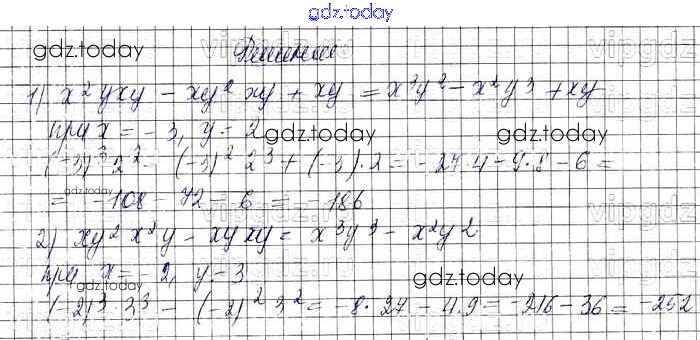 gdz.today
gdz.today Решение vipgdz.ru
1) x²yxy − xy²xy + xy = x³y² − x²y³ + xy
при x = −3, y = 2 gdz.today gdz.today
(−3)³·2² − (−3)²·2³ + (−3)·2 = −27·4 − 9·8 − 6 =
gdz.today
= −108 − 72 − 6 = −186
2) xy²x²y − xyxy = x³y³ − x²y²
при x = −2, y = 3 gdz.today gdz.today
(−2)³·3³ − (−2)²·3² = −8·27 − 4·9 = −216 − 36 = −252